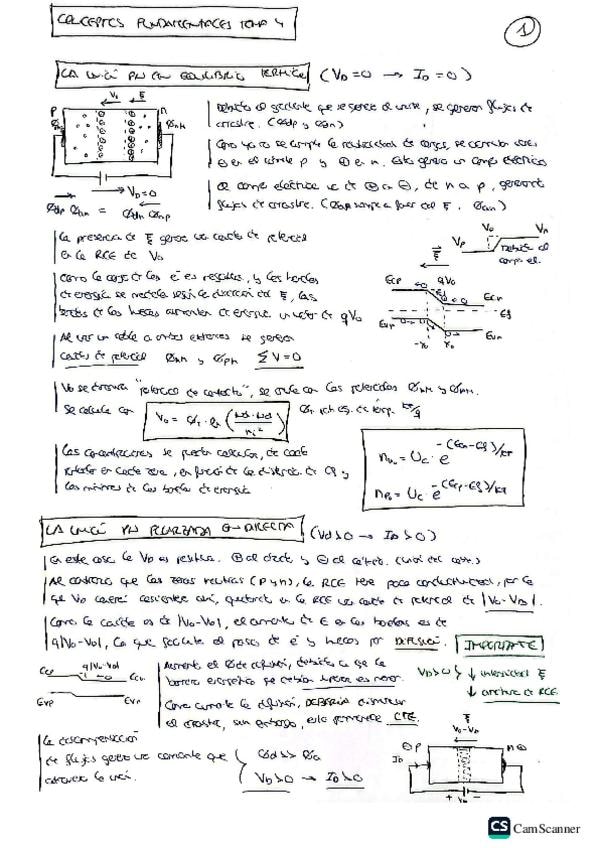 CONCEPTOS FUNDAMENTALES TEMA 4
1
LA UNIÓN PN EN EQUILIBRIO TÉRMICO (VD=0 → ID=0)
Debido al gradiente que se genera al unirse, se generan flujos de
arrastre. (Ødp y Øn)
⊖ en el lado p y ⊕ en n. Esto genera un campo eléctrico
El campo eléctrico va de ⊕ en ⊖, de n a p, generando
flujos de arrastre.
P
n
V0
ξ
VD=0
La presencia de ξ genera una caída de potencial
en la RCE de V0
V0
Vp
Vn
Debido al
campo el.
ξ
Como la carga de los e⁻ es negativa, y las bandas
de energía se modelan según la dirección del ξ, las
bandas de los huecos aumentan de energía un valor de qV0
Ecp
qV0
Ecn
Ef
Evp
Evn
-x0
x0
Al unir un cable a ambos extremos se generan
caídas de potencial ØnM y ØpM ΣV=0
V0 se denomina "potencial de contacto", se anula con los potenciales ØnM y ØpM.
Se calcula con V0 = ØT · ln (Na·Nd / ni²)
Las concentraciones se pueden calcular, de cada
portador en cada zona, en función de la distancia de Ef y
los mínimos de las bandas de energía
nn0 = Uc · e^-(Ecn-Ef)/KT
np0 = Uc · e^-(Ecp-Ef)/KT
LA UNIÓN PN POLARIZADA EN DIRECTA (Vd>0 → ID>0)
En este caso la VD es positiva. ⊕ al ánodo y ⊖ al cátodo.
Al contrario que las zonas neutras (P y n), la RCE tiene poca conductividad, por lo
que VD caerá casi entera ahí, quedando en la RCE una caída de potencial de |V0-VD|.
Como la caída es de |V0-VD|, el aumento de E en las bandas es de
q|V0-VD|, lo que facilita el paso de e⁻ y huecos por DIFUSIÓN.
IMPORTANTE
Ecp
q|V0-VD|
Ecn
Evp
Evn
Aumenta el Ø de difusión, debido a que la
barrera energética que debían superar es menor.
VD>0 } ↓ intensidad ξ
↓ anchura de RCE
Como aumenta la difusión, DEBERÍA disminuir
el arrastre, sin embargo, este permanece CTE.
La descompensación
de flujos genera una corriente que
atraviesa la unión.
Ød >> Øa
VD>0 → ID>0
ξ
V0-VD
⊕P
n⊖
ID
+ VD -
CS CamScanner